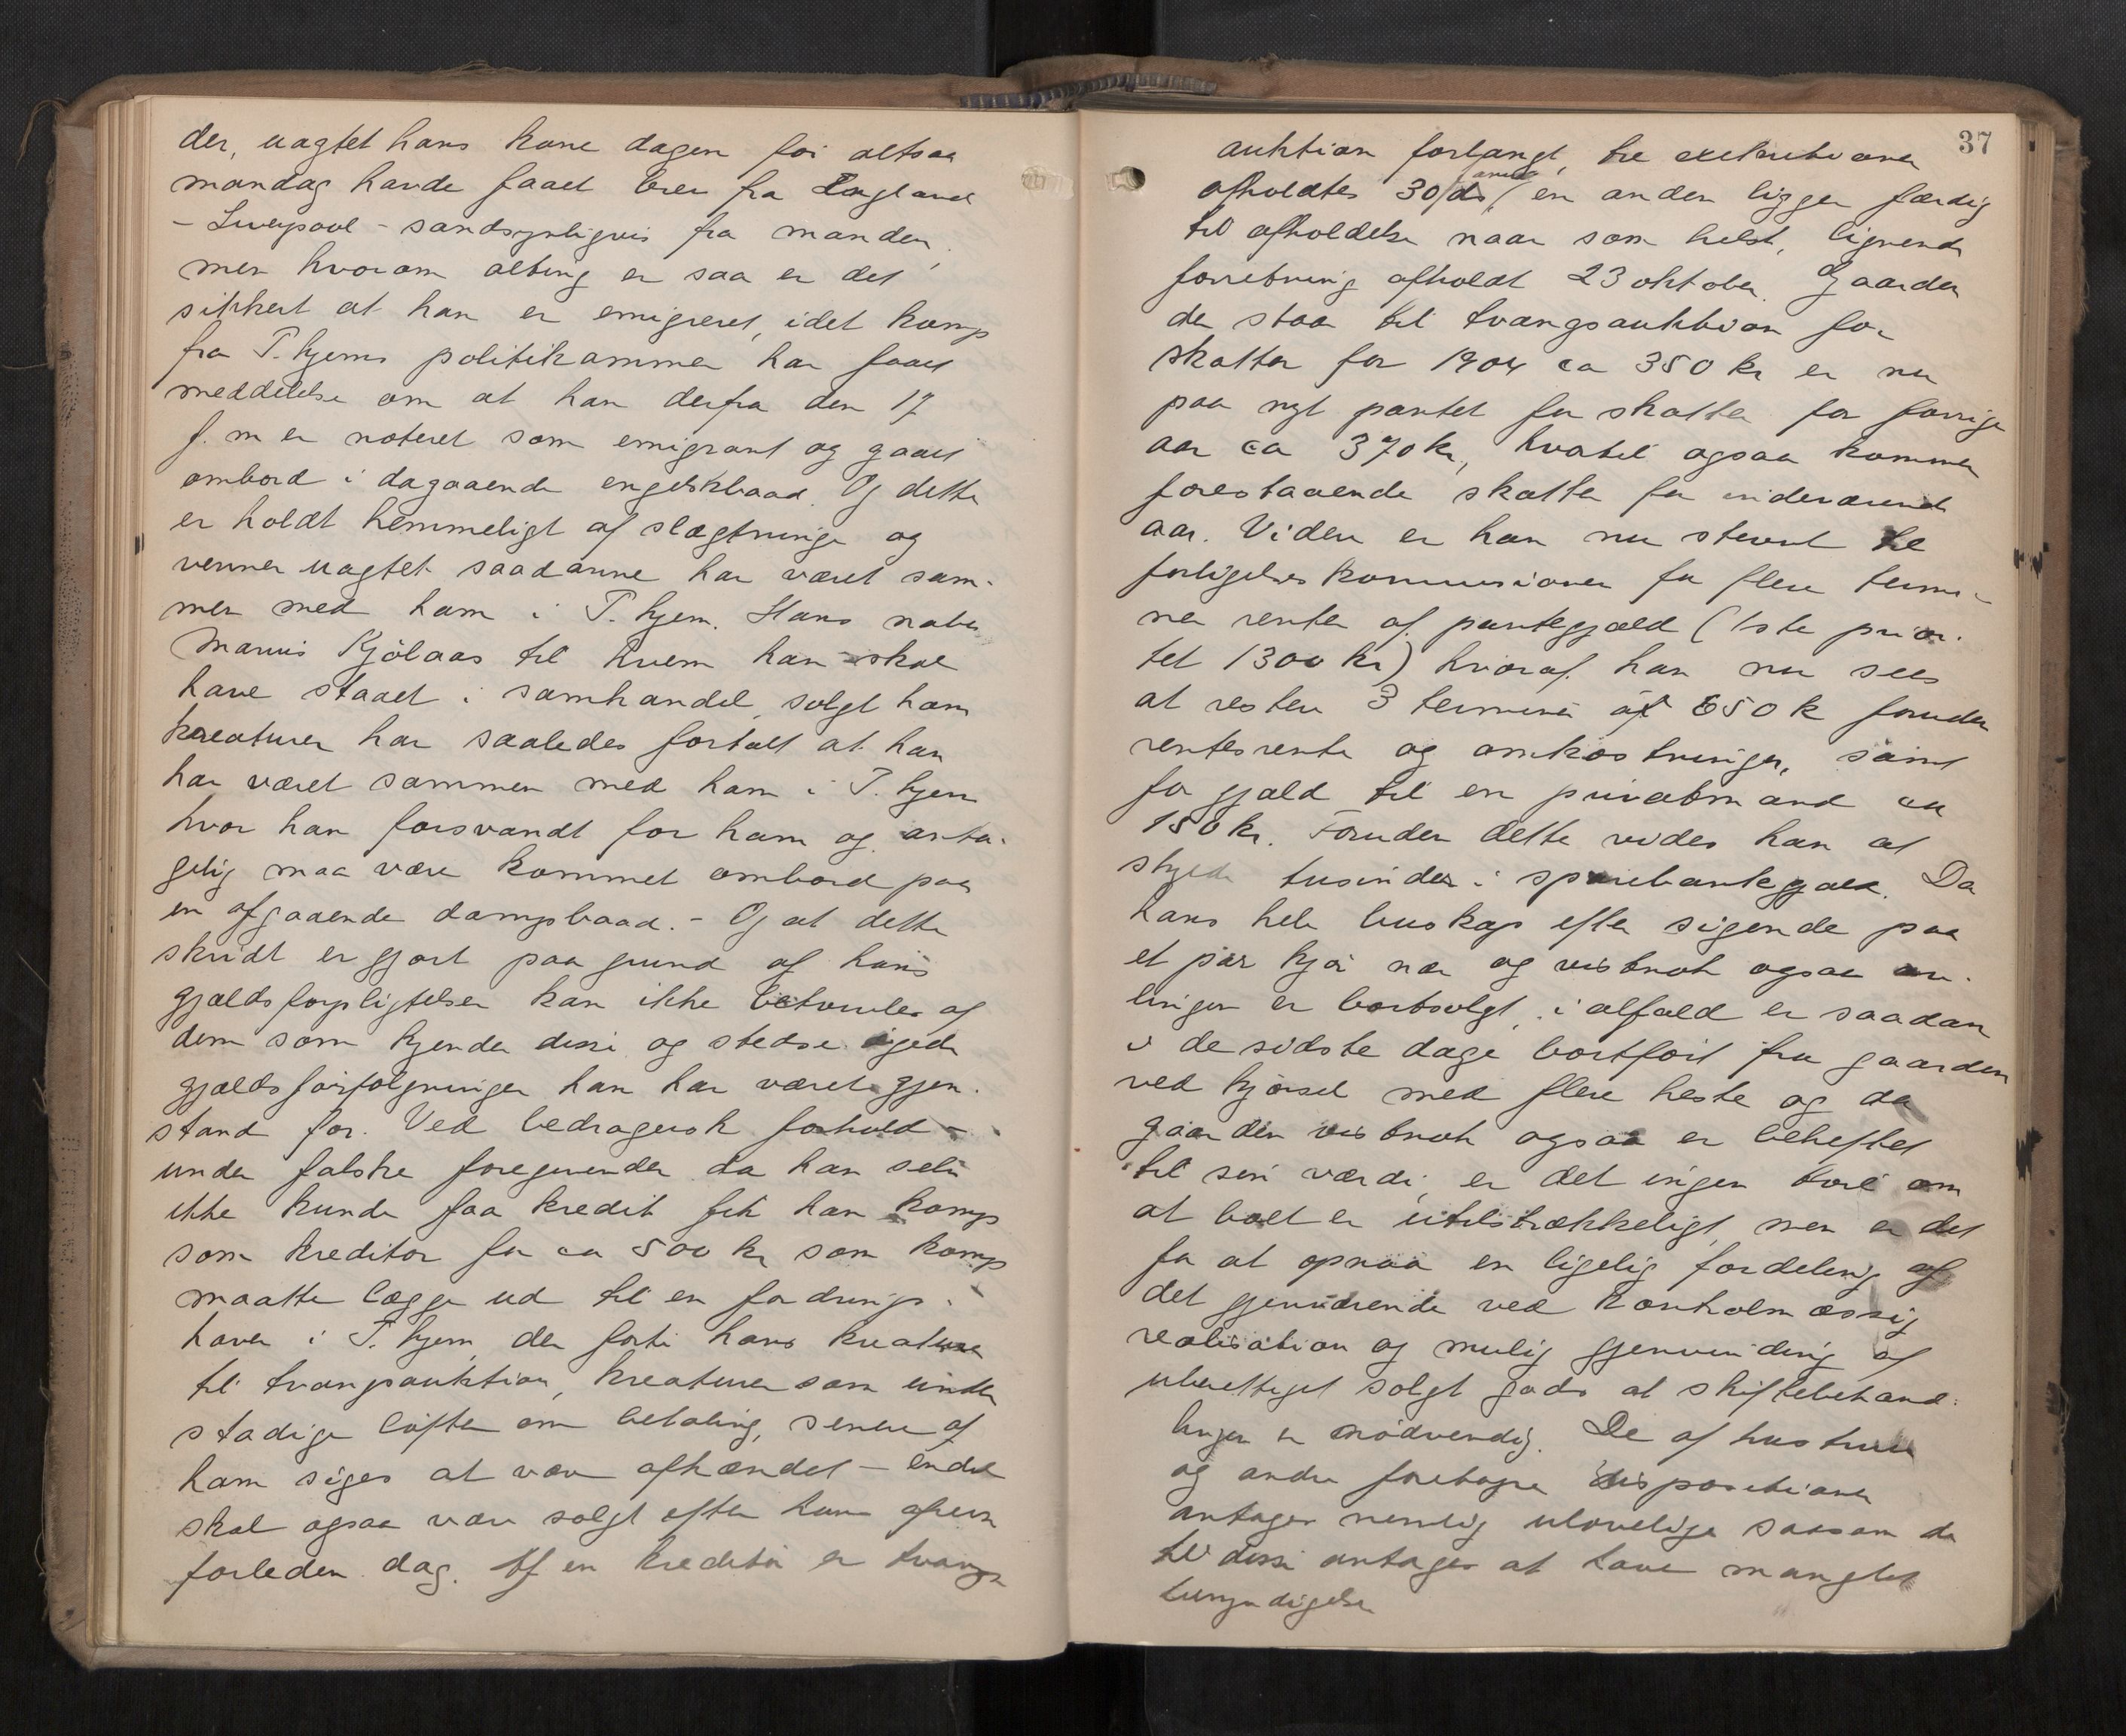 der, uagtet hans kone dagen før altsaa
mandag havde faaet brev fra England
- Liverpool - sandsynligvis fra manden,
men hvorom alting er saa er det
sikkert at han er emigreret, idet komp
fra T.hjems politikammer har faaet
meddelelse om at han derfra den 17
f. m er noteret som emigrant og gaaet
ombord i dagaaende engelskbaad. Og dette
er holdt hemmeligt af slægtninge og
venner uagtet saadanne har været sam-
men med ham i T.hjem. Hans nabo
Marius Kjölaas til hvem han skal
have staaet i samhandel, solgt ham
kreaturer har saaledes fortalt at han
har været sammen med ham i T.hjem
hvor han forsvandt for ham og anta-
gelig maa være kommet ombord paa
en afgaaende dampbaad. - Og at dette
skridt er gjort paa grund af hans
gjældsforpligtelser kan ikke betviles af
dem som kjender disse og stedse
gjældsforfølgninger han har været gjen-
stand for. Ved bedragersk forhold -
under falske foregivender da han selv
ikke kunde faa kredit fik han komp
som kreditor for ca 500 kr som komp
maatte lægge ud til en fadrings-
haver i T.hjem, der førte hans kreature
til tvangsauktion, kreaturer som under
stadige løfter om betaling, senere af
ham siges at være afhændet - endel
skal ogsaa være solgt efter hans afreise
forleden dag. Af en kreditor er tvangs
37
auktion forlangt, tre exekutioner
afholdtes 30/ds, en anden ligger færdig
til afholdelse naar som helst, lignende
forretning afholdt 23 oktober. Gaarden
der staar til tvangsauktion for
skatter for 1904 ca 350 kr er nu
paa nyt pantet for skatter for forrige
aar ca 370 kr, hvortil ogsaa kommer
forestaaende skatter for indeværende
aar. Videre er han nu stevnt til
forligelseskommissionen for flere termi-
ner renter af pantegjæld (1ste prior.
tet 1300 kr) hvoraf han nu sees
at restere 3 terminer af 650 k foruden
rentesrente og omkostninger, samt
for gjæld til en privatmand ca
150 kr. Foruden dette vides han at
skylde tusinder i sparebankgjæld. Da
hans hele buskap efter sigende paa
et par kjør nær og vistnok ogsaa av-
lingen er bortsolgt, i alfald er saadan
i de sidste dage bortført fra gaarden
ved kjørsel med flere heste og da
gaarden vistnok ogsaa er beheftet
til sin værdi, er det ingen tvil om
at boet er utilstrækkeligt, men er det
for at opnaa en ligelig fordeling af
det gjenværende ved konkursmæssig
realisation og mulig gjenvinding af
uberettiget solgt gods at skiftebehand-
lingen er nödvendig. De af hustruen
og andre foretagne dispositioner
antages nemlig ulovelige saasom de
til disse antages at have manglet
bemyndigelse